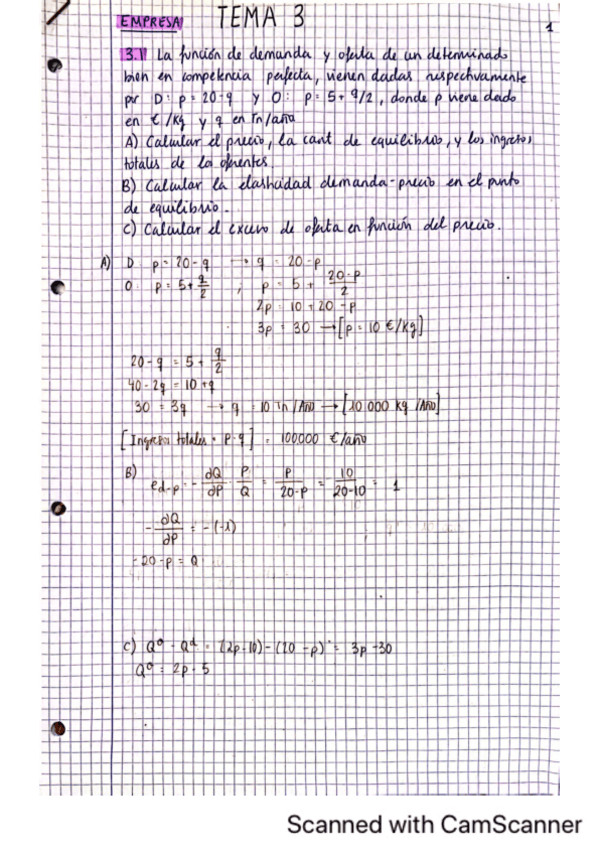 EMPRESA TEMA 3
1
3.1 La función de demanda y oferta de un determinado
bien en competencia perfecta, vienen dadas respectivamente
por D: p = 20-q y O: p = 5+ q/2, donde p viene dado
en €/kg y q en Tn/año
A) Calcular el precio, la cant de equilibrio, y los ingresos
totales de los oferentes.
B) Calcular la elasticidad demanda-precio en el punto
de equilibrio.
C) Calcular el exceso de oferta en función del precio.
A) D: p = 20-q → q = 20-p
O: p = 5+ q/2 ; p = 5 + (20-p)/2
2p = 10 + 20 - p
3p = 30 → [p = 10 €/kg]
20-q = 5 + q/2
40-2q = 10+q
30 = 3q → q = 10 Tn/Año → [10 000 kg/Año]
[Ingresos totales = p·q] = 100000 €/año
B) ed-p = - ∂Q/∂P · P/Q = P/(20-P) = 10/(20-10) = 1
- ∂Q/∂P = -(-1)
20-p = Q
C) Qº - Qd = (2p-10)-(20-p) = 3p-30
Qº = 2p - 5
Scanned with CamScanner